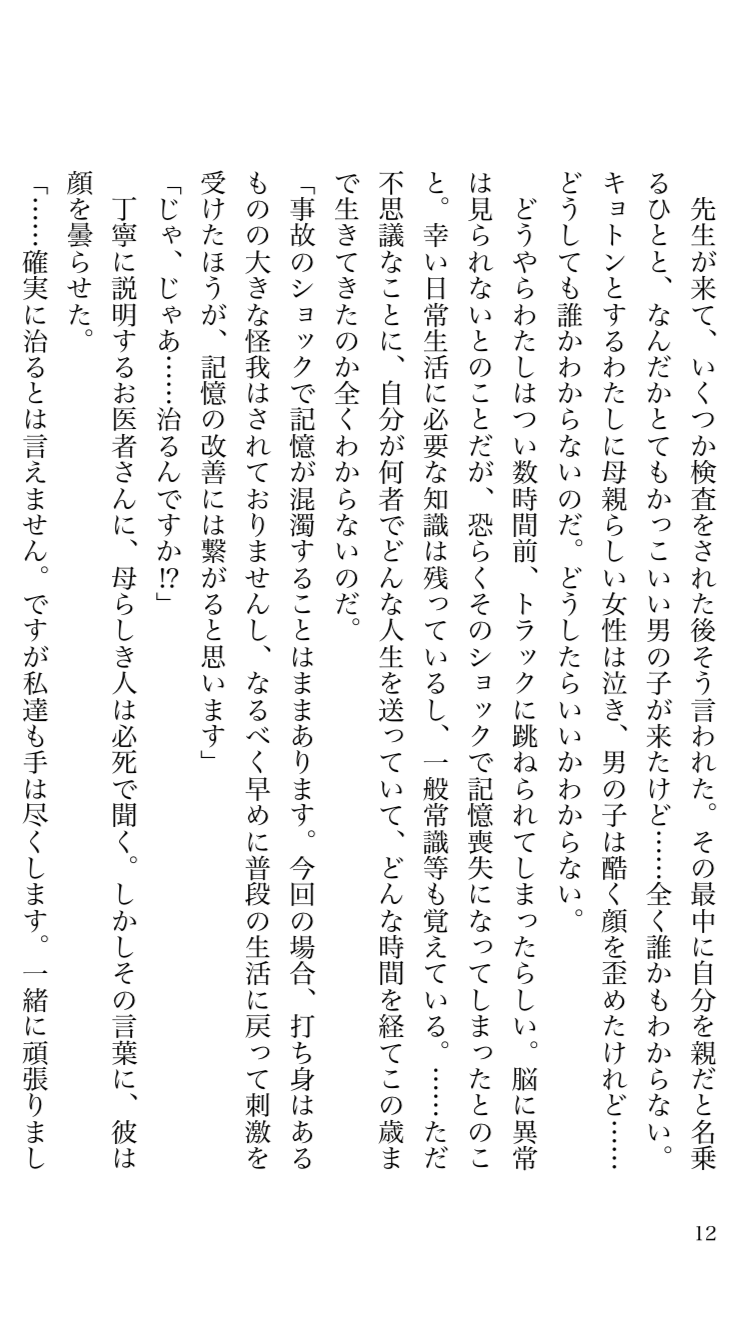 先生が来て、いくつか検査をされた後そう言われた。その最中に自分を親だと名乗
るひとと、なんだかとてもかっこいい男の子が来たけど……全く誰かもわからない。
キョトンとするわたしに母親らしい女性は泣き、男の子は酷く顔を歪めたけれど……
どうしても誰かわからないのだ。どうしたらいいかわからない。
どうやらわたしはつい数時間前、トラックに跳ねられてしまったらしい。脳に異常
は見られないとのことだが、恐らくそのショックで記憶喪失になってしまったとのこ
と。幸い日常生活に必要な知識は残っているし、一般常識等も覚えている。……ただ
不思議なことに、自分が何者でどんな人生を送っていて、どんな時間を経てこの歳ま
で生きてきたのか全くわからないのだ。
「事故のショックで記憶が混濁することはままあります。今回の場合、打ち身はある
ものの大きな怪我はされておりませんし、なるべく早めに普段の生活に戻って刺激を
受けたほうが、記憶の改善には繋がると思います」
「じゃ、じゃあ……治るんですか⁉」
丁寧に説明するお医者さんに、母らしき人は必死で聞く。しかしその言葉に、彼は
顔を曇らせた。
「……確実に治るとは言えません。ですが私達も手は尽くします。一緒に頑張りまし
12